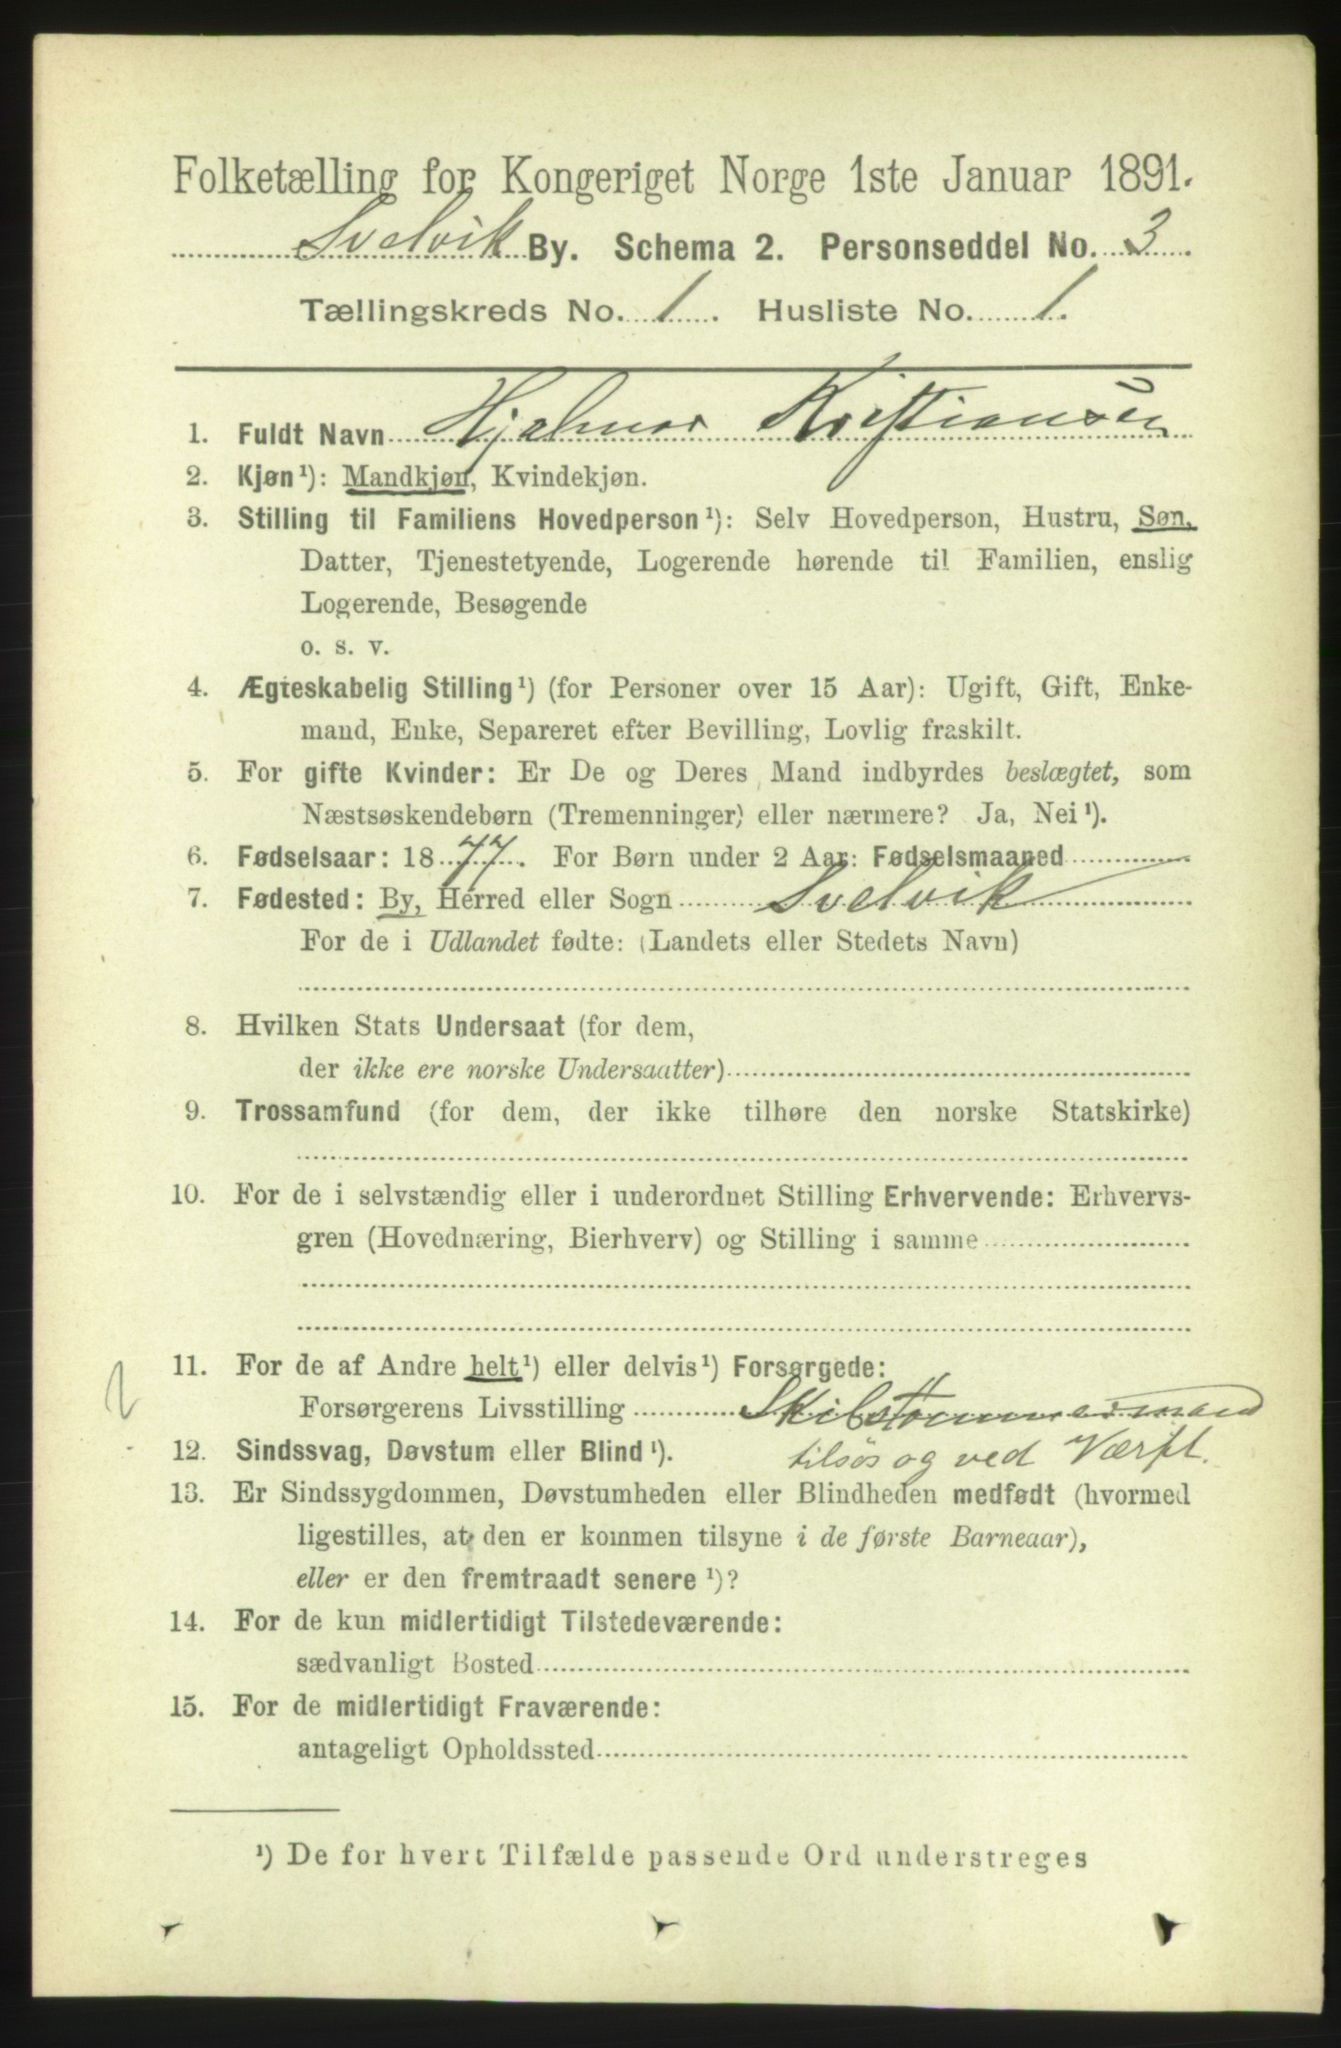 Folketælling for Kongeriget Norge 1ste Januar 1891.
Svelvik By. Schema 2. Personseddel No. 3.
Tællingskreds No. 1. Husliste No. 1.
1. Fuldt Navn Hjalmar Kristiansen
2. Kjøn¹): Mandkjøn, Kvindekjøn.
3. Stilling til Familiens Hovedperson¹): Selv Hovedperson, Hustru, Søn,
Datter, Tjenestetyende, Logerende hørende til Familien, enslig
Logerende, Besøgende
o. s. v.
4. Ægteskabelig Stilling¹) (for Personer over 15 Aar): Ugift, Gift, Enke-
mand, Enke, Separeret efter Bevilling, Lovlig fraskilt.
5. For gifte Kvinder: Er De og Deres Mand indbyrdes beslægtet, som
Næstsøskendebørn (Tremenninger) eller nærmere? Ja, Nei¹).
6. Fødselsaar: 1877. For Børn under 2 Aar: Fødselsmaaned
7. Fødested: By, Herred eller Sogn Svelvik
For de i Udlandet fødte: (Landets eller Stedets Navn)
8. Hvilken Stats Undersaat (for dem,
der ikke ere norske Undersaatter)
9. Trossamfund (for dem, der ikke tilhøre den norske Statskirke)
10. For de i selvstændig eller i underordnet Stilling Erhvervende: Erhvervs-
gren (Hovednæring, Bierhverv) og Stilling i samme
11. For de af Andre helt¹) eller delvis¹) Forsørgede:
Forsørgerens Livsstilling Skibstømmermand
12. Sindssvag, Døvstum eller Blind¹). tilsøs og ved Værft.
13. Er Sindssygdommen, Døvstumheden eller Blindheden medfødt (hvormed
ligestilles, at den er kommen tilsyne i de første Barneaar),
eller er den fremtraadt senere¹)?
14. For de kun midlertidigt Tilstedeværende:
sædvanligt Bosted
15. For de midlertidigt Fraværende:
antageligt Opholdssted
¹) De for hvert Tilfælde passende Ord understreges